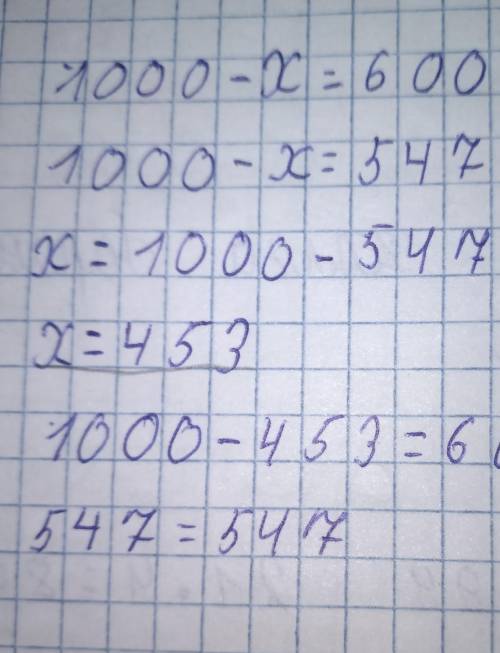 1000 - x = 600
1000 - x = 547
x = 1000 - 547
x = 453
1000 - 453 = 6
547 = 547